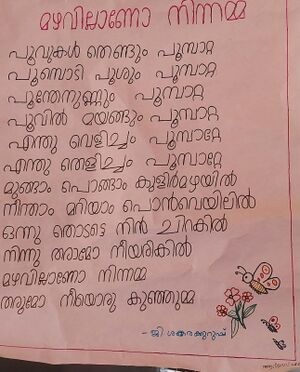 മഴവില്ലാണോ നിന്നമ്മ
പൂവുകൾ തെണ്ടും പൂമ്പാറ്റ
പൂമ്പൊടി പൂശും പൂമ്പാറ്റ
പൂന്തേനുണ്ണും പൂമ്പാറ്റ
പൂവിൽ മയങ്ങും പൂമ്പാറ്റ
എന്തു വെളിച്ചം പൂമ്പാറ്റേ
എന്തു തെളിച്ചം പൂമ്പാറ്റേ
മുങ്ങാം പൊങ്ങാം കുളിർമഴയിൽ
നീന്താം മറിയാം പൊൻവെയിലിൽ
ഒന്നു തൊടട്ടെ നിൻ ചിറകിൽ
നിന്നു തരാമോ നീയരികിൽ
മഴവില്ലാണോ നിന്നമ്മ
തരുമോ നീയൊരു കുഞ്ഞുമ്മ
- ജി.ശങ്കരക്കുറുപ്പ്